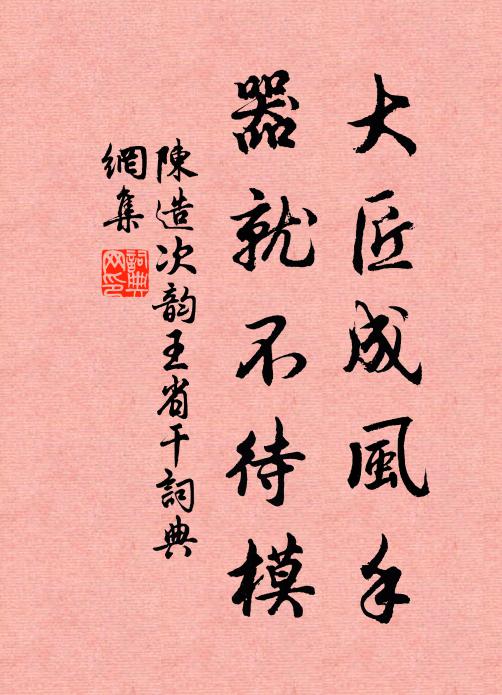 大匠成風手
器就不待模
陳造次韵王省干詞典
網集
詞典
网印